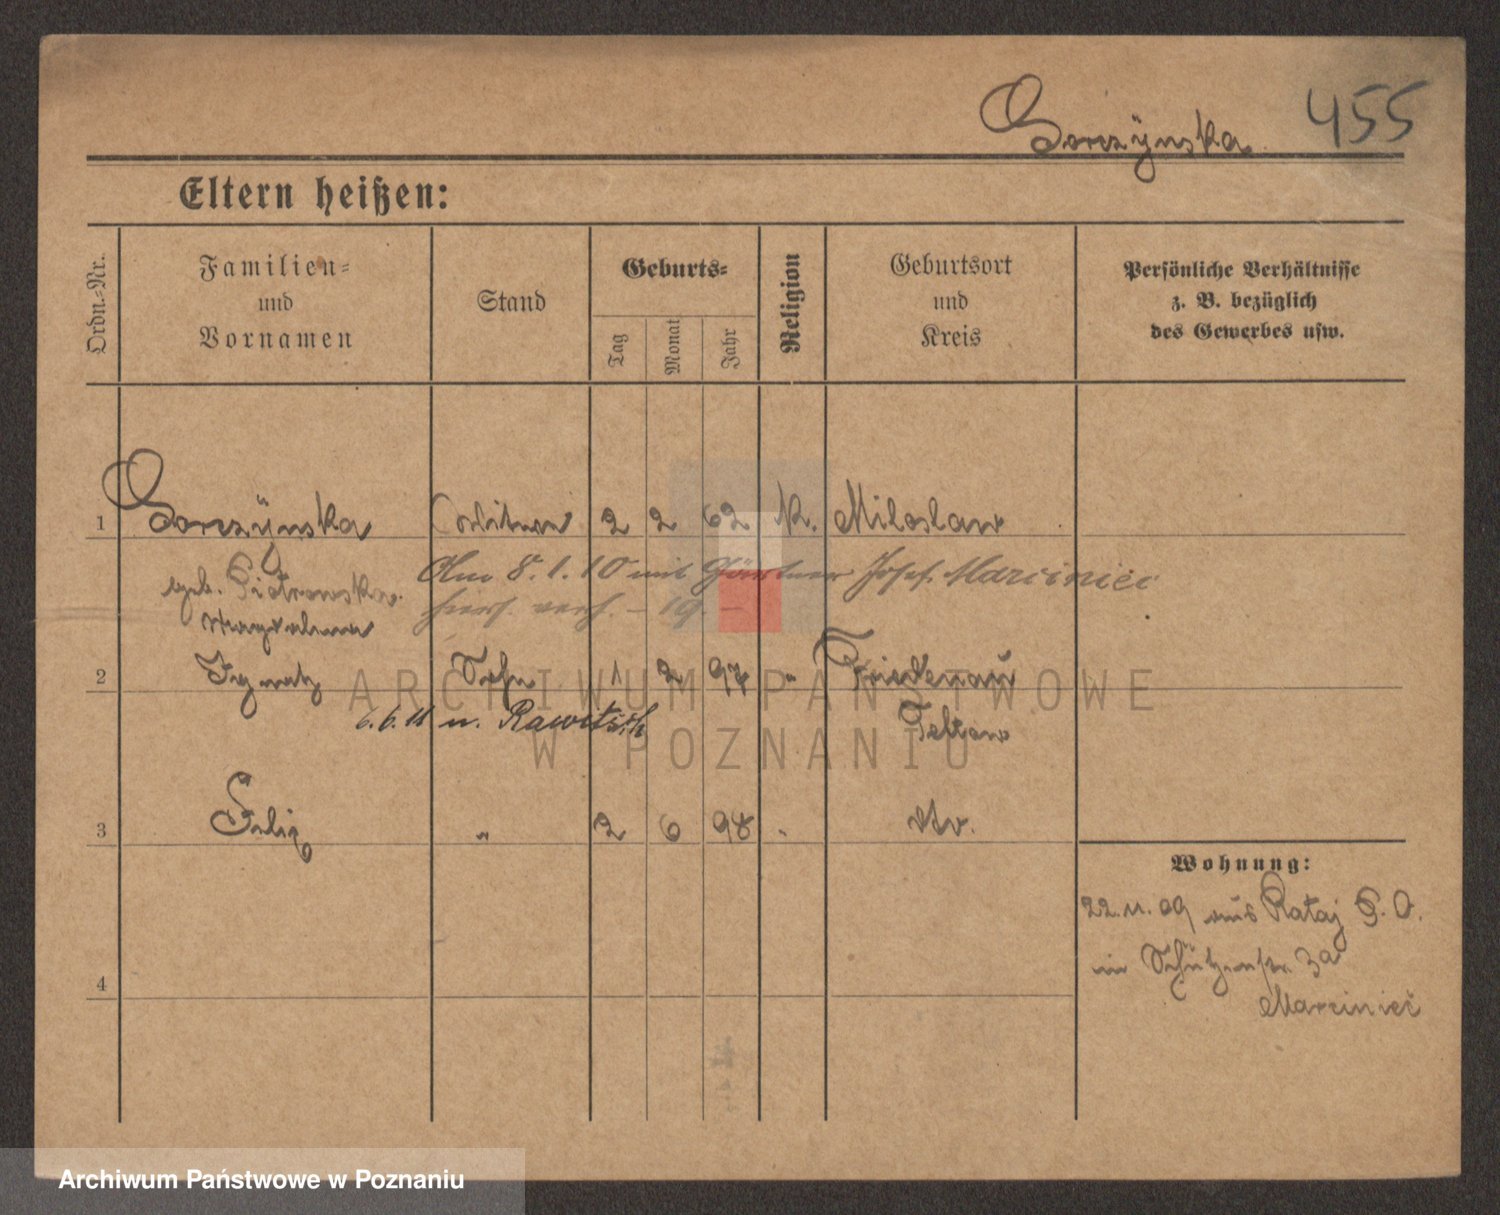 Gorczÿnska 455
Eltern heißen:
Ordn.-Nr.
Familien-
und
Vornamen
Stand
Geburts-
Tag
Monat
Jahr
Religion
Geburtsort
und
Kreis
Persönliche Verhältnisse
z. B. bezüglich
des Gewerbes usw.
1 Gorczÿnska 2 2 62 K. Miloslaw
geb. Piotrowska
Am 8. 1. 10 mit Gärtner Josef Marciniec
hier verh. – 19. –
Magdalena
2 Ignatz Sohn 1 2 97 " Friedenau
6. 6. 11 n. Rawitsch
Teltow
3 Felix " 2 6 98 " dto.
Wohnung:
22. 11. 09 aus Rataj P. O.
in Schützenstr. 3a
Marciniec
4
ARCHIWUM PAŃSTWOWE
W POZNANIU
Archiwum Państwowe w Poznaniu